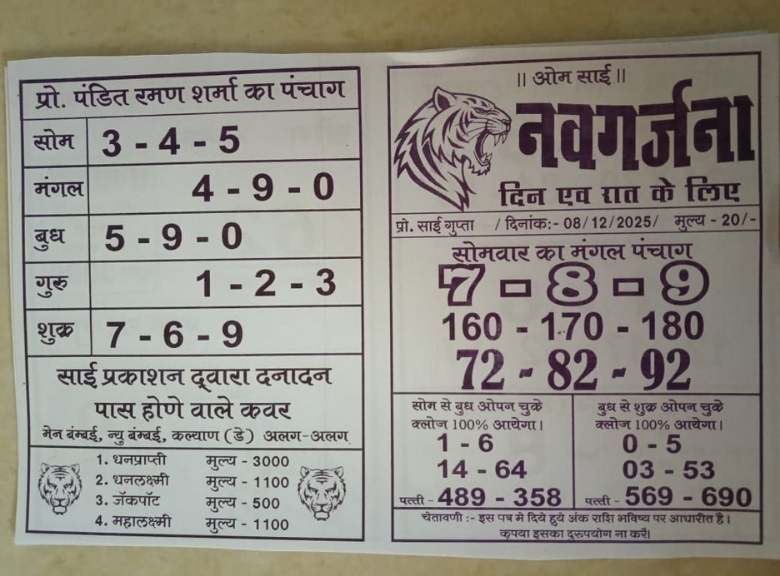 प्रो. पंडित रमण शर्मा का पंचाग
सोम 3 - 4 - 5
मंगल 4 - 9 - 0
बुध 5 - 9 - 0
गुरु 1 - 2 - 3
शुक्र 7 - 6 - 9
साई प्रकाशन द्वारा दनादन
पास होणे वाले कवर
मेन बंम्बई, न्यु बंम्बई, कल्याण (डे) अलग-अलग
1. धनप्राप्ती मुल्य - 3000
2. धनलक्ष्मी मुल्य - 1100
3. जॅकपॉट मुल्य - 500
4. महालक्ष्मी मुल्य - 1100
|| ओम साई ||
नवगर्जना
दिन एव रात के लिए
प्रो. साई गुप्ता / दिनांक:- 08/12/2025/ मुल्य - 20/-
सोमवार का मंगल पंचाग
7 - 8 - 9
160 - 170 - 180
72 - 82 - 92
सोम से बुध ओपन चुके
क्लोज 100% आयेगा।
1 - 6
14 - 64
पत्ती - 489 - 358
बुध से शुक्र ओपन चुके
क्लोज 100% आयेगा।
0 - 5
03 - 53
पत्ती - 569 - 690
चेतावणी :- इस पत्र मे दिये हुये अंक राशि भविष्य पर आधारीत है।
कृपया इसका दुरुपयोग ना करें।